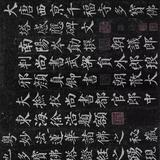 大唐西京千福寺多寶佛
塔感應碑文
南陽岑勛撰 朝議郎
判尚書武部員外郎琅
邪顏真卿書 朝散大
夫檢校尚書都官郎中
東海徐浩題額
粵妙法蓮華諸佛之秘